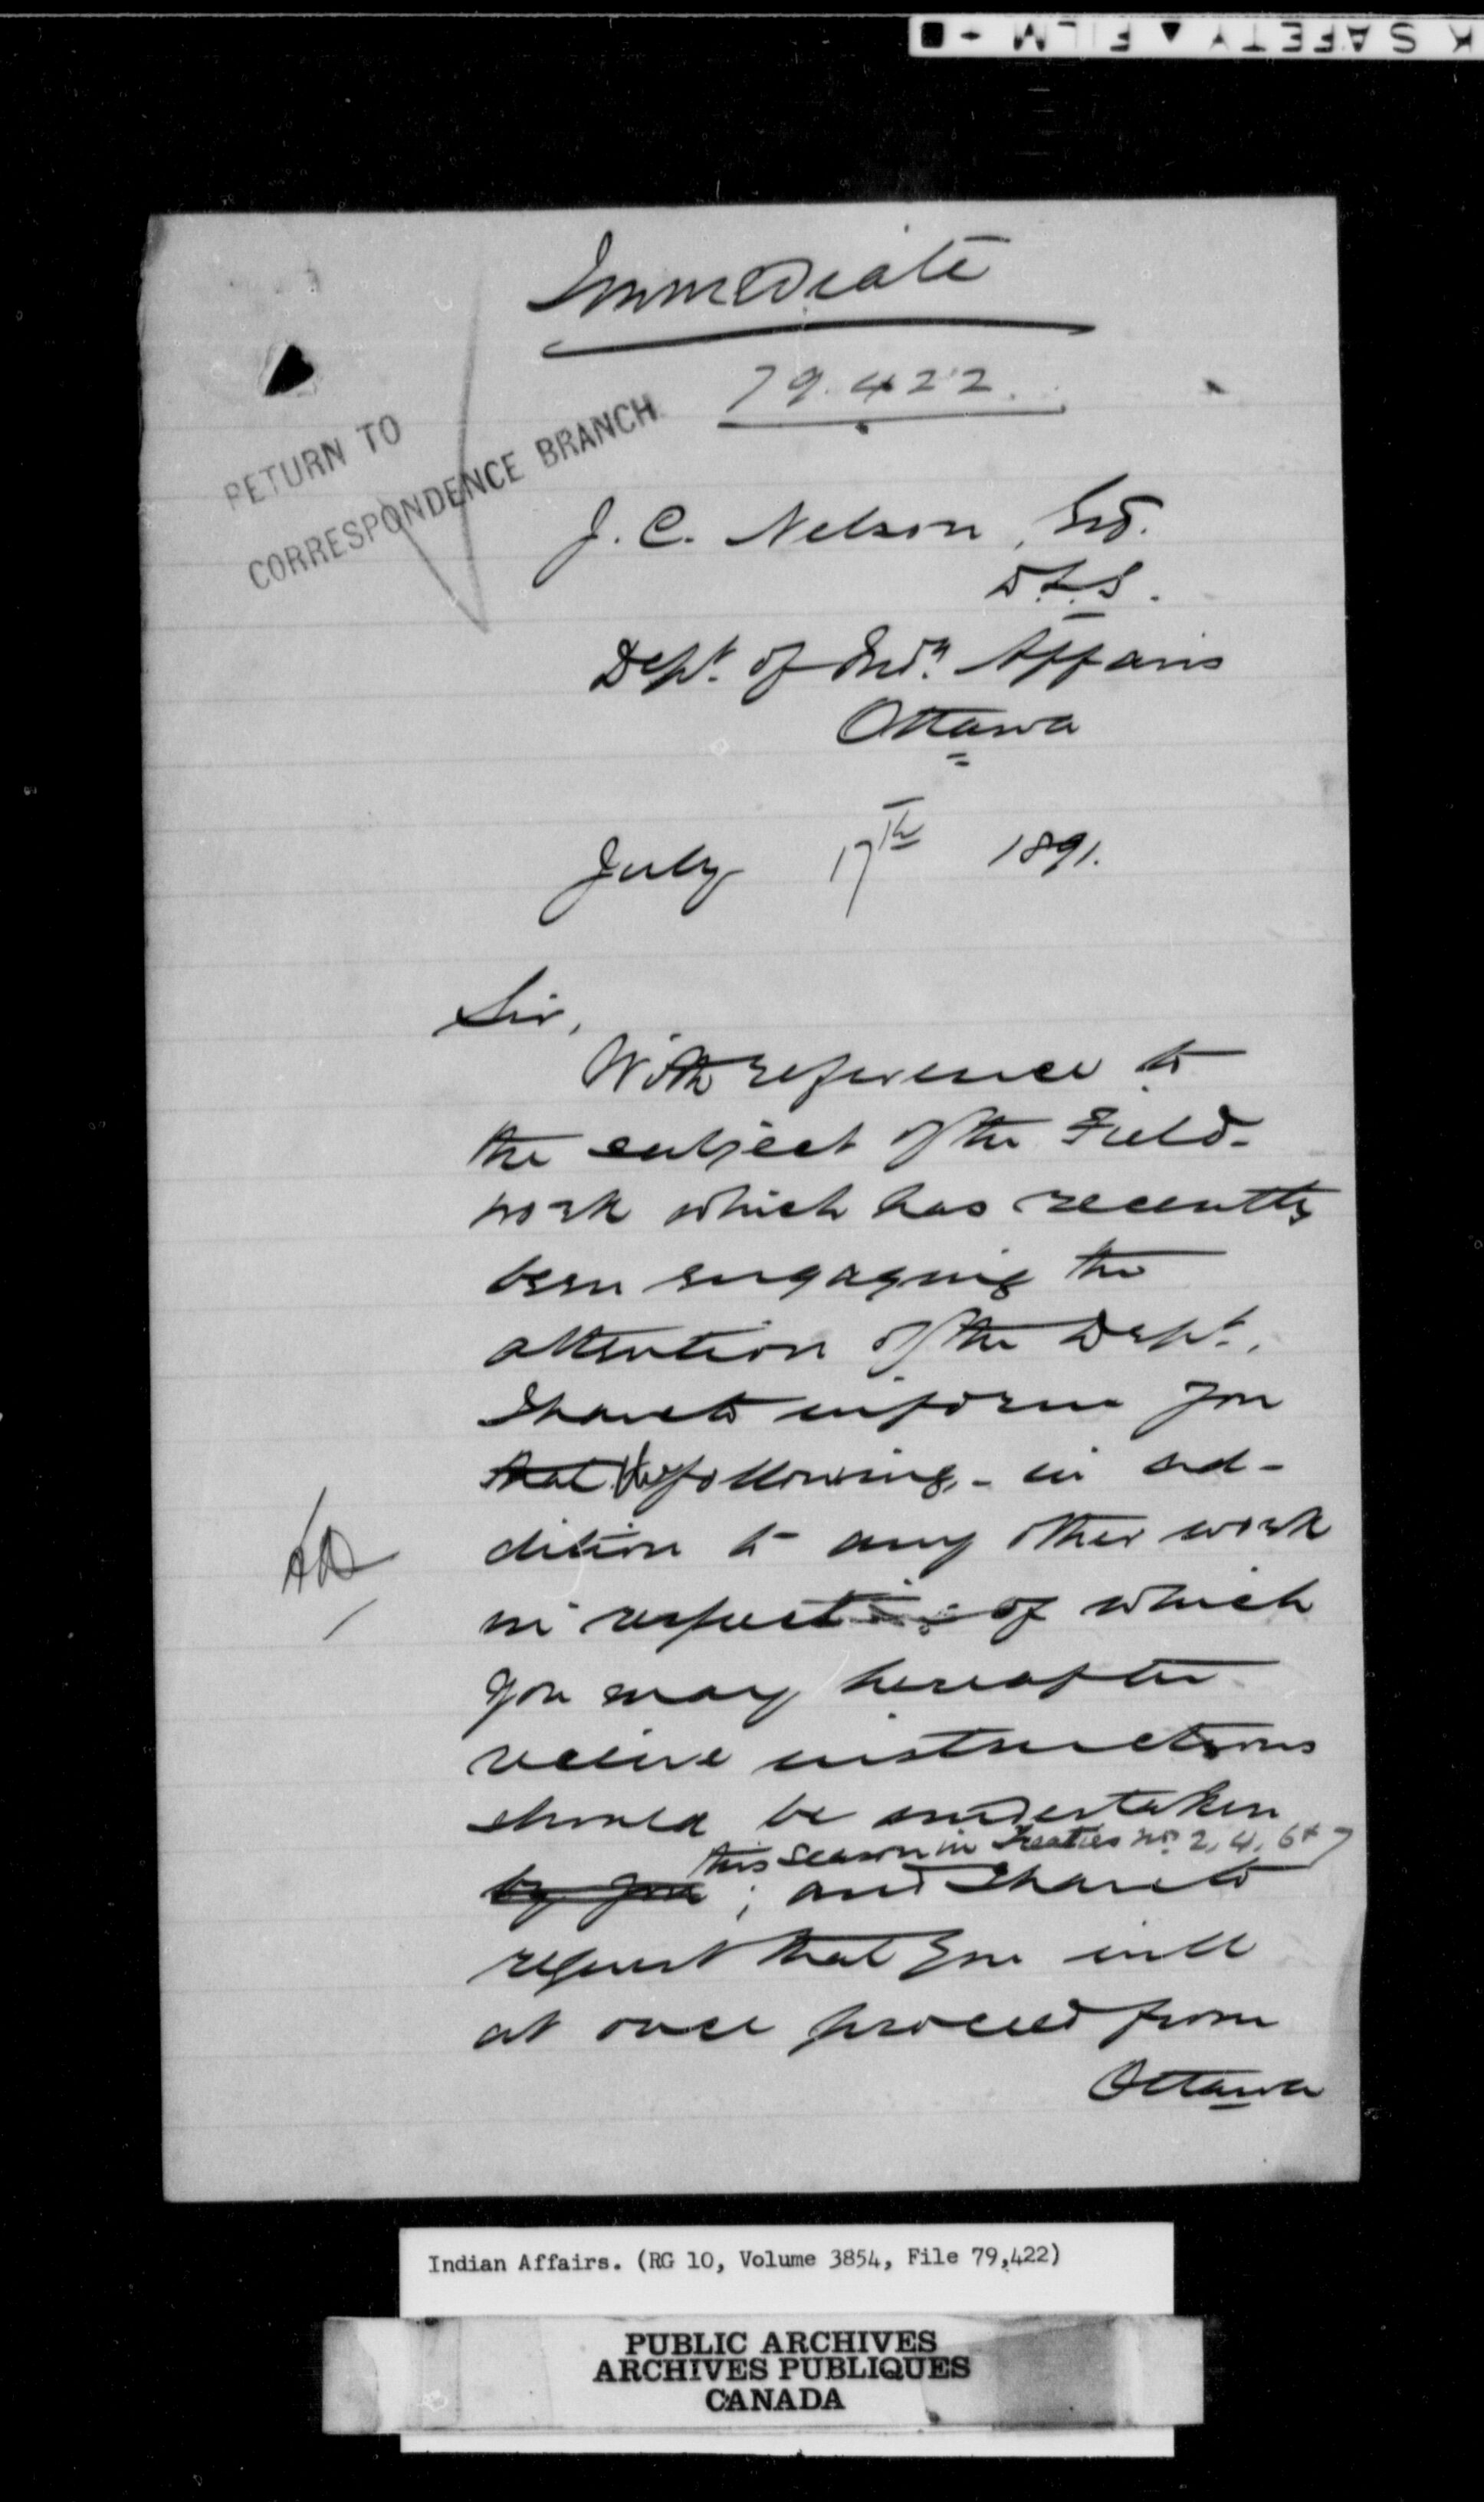 K SAFETY ▲ FILM
Immediate
79.422.
RETURN TO
CORRESPONDENCE BRANCH
J. C. Nelson, Esq.
D.L.S.
Dept. of Indn. Affairs
Ottawa
July 17th 1891.
Sir,
With reference to
the subject of the Field-
work which has recently
been engaging the
attention of the Dept.,
I have to inform you
that the following, - in ad-
dition to any other work
in respect of which
you may hereafter
receive instructions
should be undertaken
this season in Treaties No. 2, 4, 6 & 7
by you; and I have to
request that you will
at once proceed from
Ottawa
Indian Affairs. (RG 10, Volume 3854, File 79,422)
PUBLIC ARCHIVES
ARCHIVES PUBLIQUES
CANADA